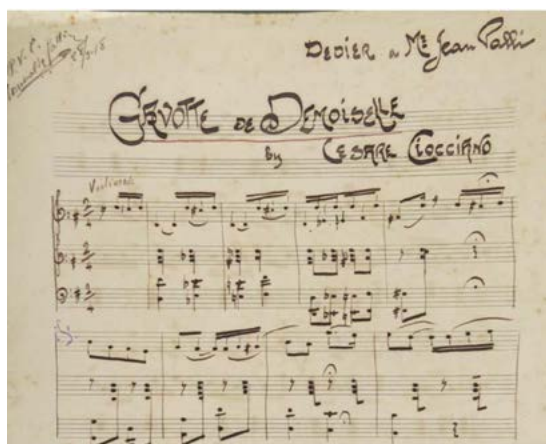 Dedier a Mr Jean Palli
Gavotte de Demoiselle
by Cesare Cioccianо
Violoncelle
2/4
2/4
2/4